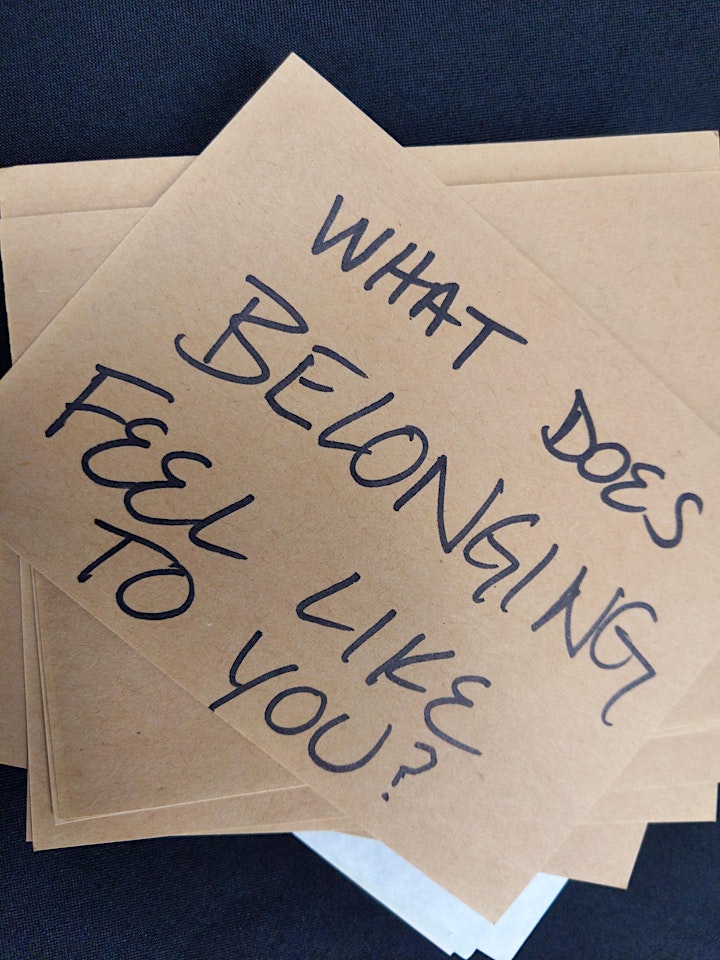 WHAT DOES
BELONGING
FEEL LIKE
TO YOU?